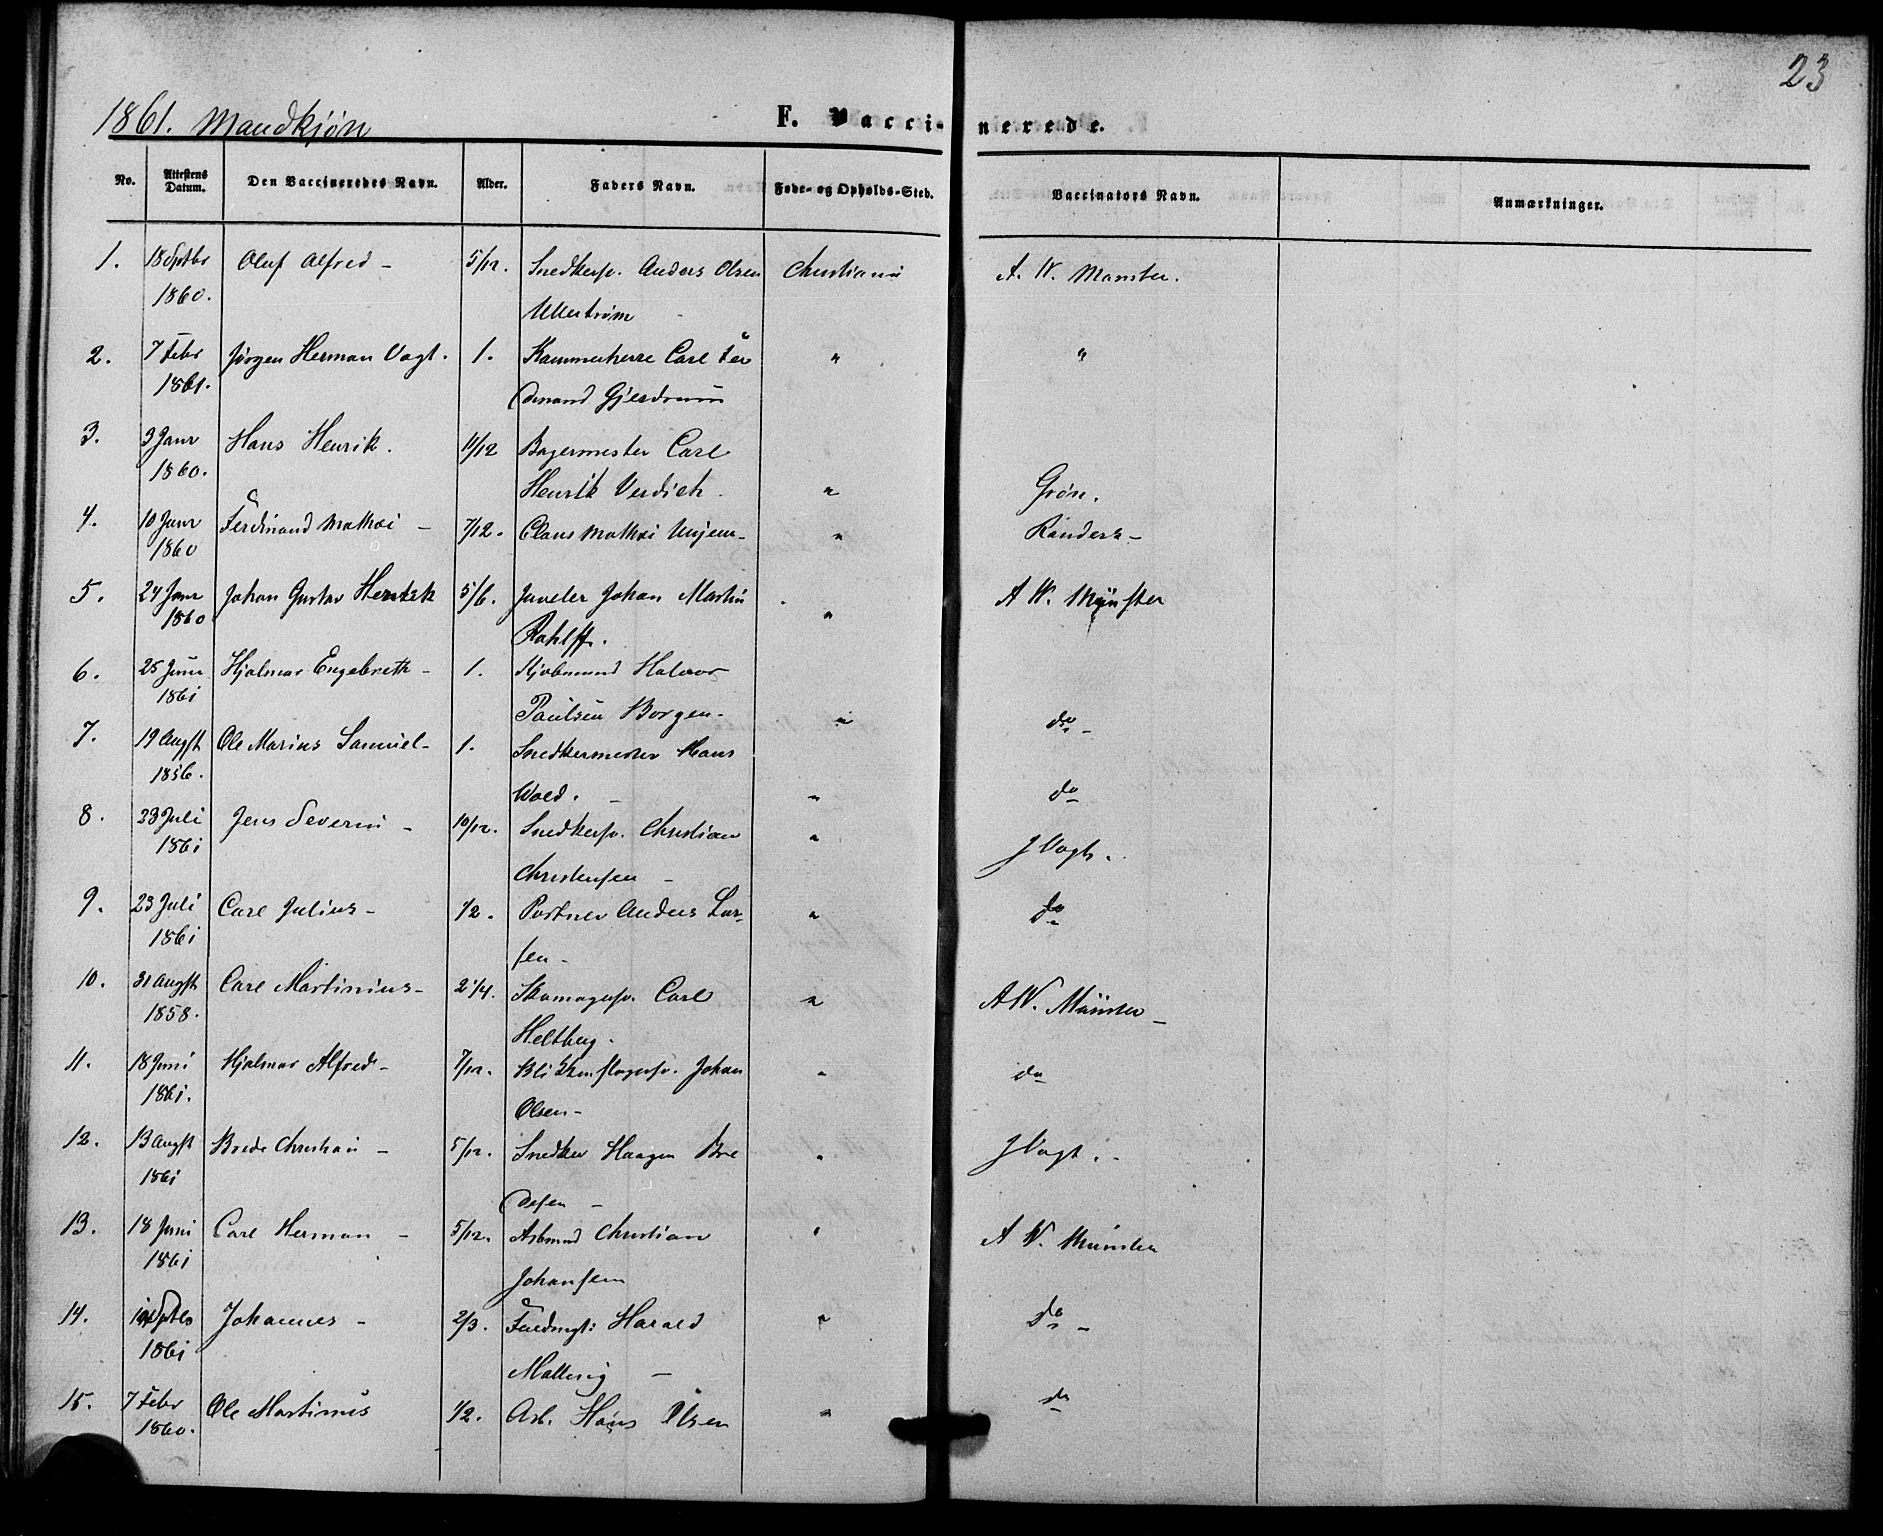 23
1861. Mandkjøn
F. Vaccinerede.
No. Attestens Datum. Den Vaccineredes Navn. Alder. Faders Navn. Føde- og Opholds-Sted. Vaccinators Navn. Anmærkninger.
1. 18 Septbr Oluf Alfred - 5/12. Snedkersv. Anders Olsen Christiania A. W. Münster.
1860. Ullestrøm
2. 7 Febr Jørgen Herman Vogt. 1. Kammerherre Carl Fer " "
1861. dinand Gjerdrum
3. 3 Janr Hans Henrik. 11/12 Bagermester Carl
1860. Henrik Verdich. " Grøn.
4. 10 Janr Ferdinand Mathæi - 7/12. Claus Mathæi " Randers -
1860
5. 24 Janr Johan Gustav Henrik 5/6. Juveler Johan Martin " A W. Münster
1860 Rohlff.
6. 25 Juni Hjalmar Engebreth - 1. Kjøbmand Halvor
1861 Paulsen Borgen - " do -
7. 19 Augst Ole Marius Samuel - 1. Snedkermester Hans
1856. Wold. - " do
8. 23 Juli Jens Severin - 10/12. Snedkersv. Christian " J Vogt.
1861 Christensen -
9. 23 Juli Carl Julius - 1/2. Portner Anders Lar- " do
1861 sen -
10. 31 Augst Carl Martinius - 2 1/4. Skomagersv. Carl " A W. Münster -
1858. Heltberg.
11. 18 Juni Hjalmar Alfred - 7/12. Blikkenslagersv. Johan " do
1861. Olsen -
12. 13 Augst Brede Christian - 5/12. Snedker Haagen Bre " J Vogt. -
1861 desen -
13. 18 Juni Carl Herman - 5/12. Arbmand Christian " A W. Münster
1861 Johansen
14. Septbr Johannes - 2/3. Fuldmgt: Harald " do -
1861 -
15. 7 Febr Ole Martinius 1/2. Arb. Hans Olsen " do
1860.